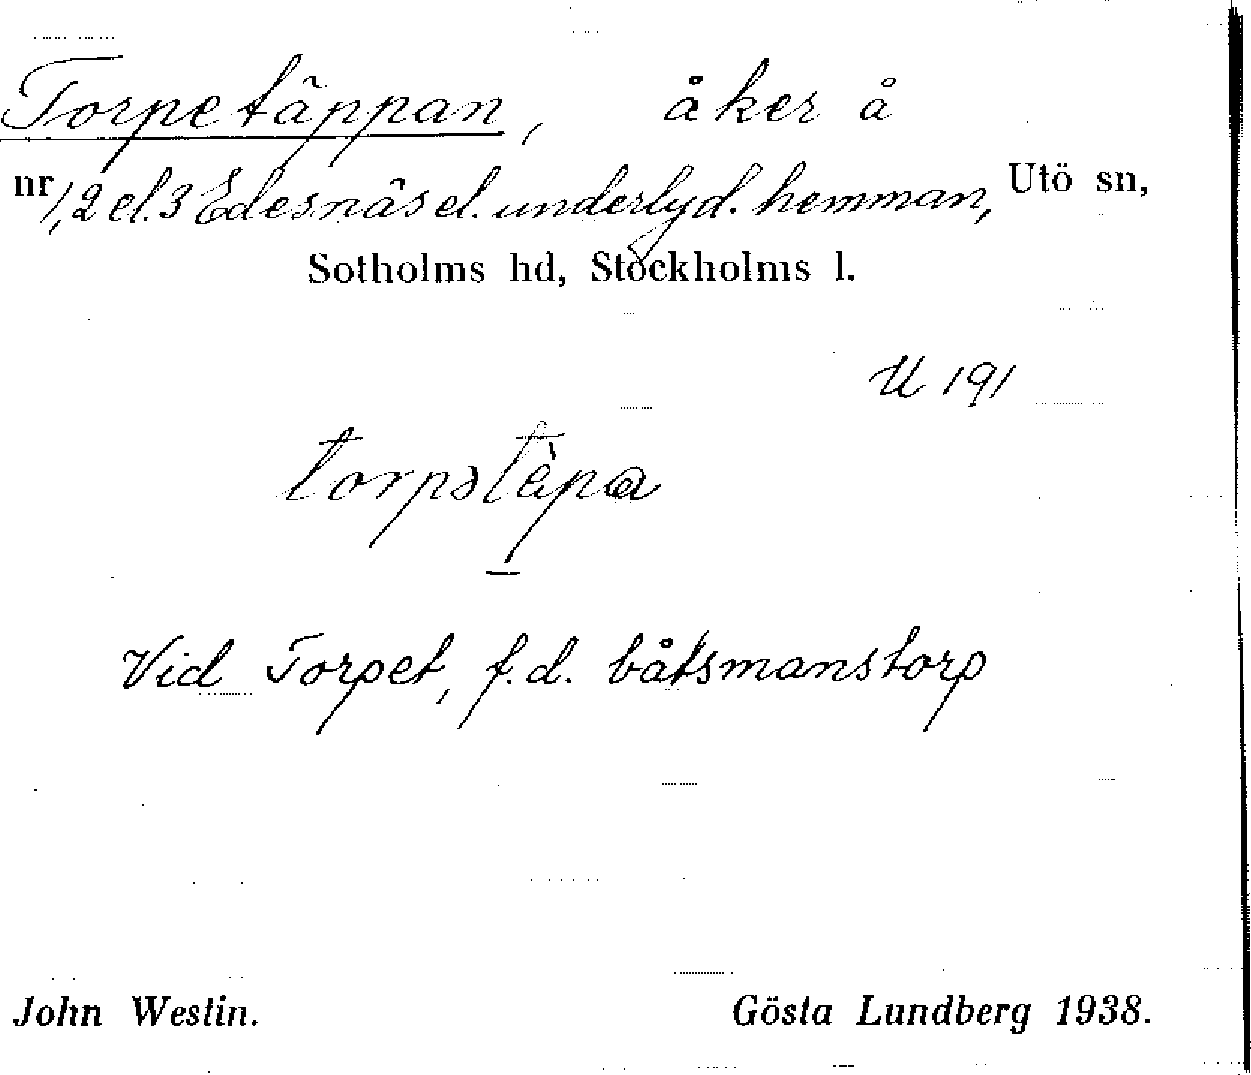 Torpetäppan, åker å
nr 1, 2 el. 3 Edesnäs el. underlyd. hemman, Utö sn,
Sotholms hd, Stockholms l.
U 191
torpətäpa
Vid Torpet, f.d. båtsmanstorp
John Westin. Gösta Lundberg 1938.